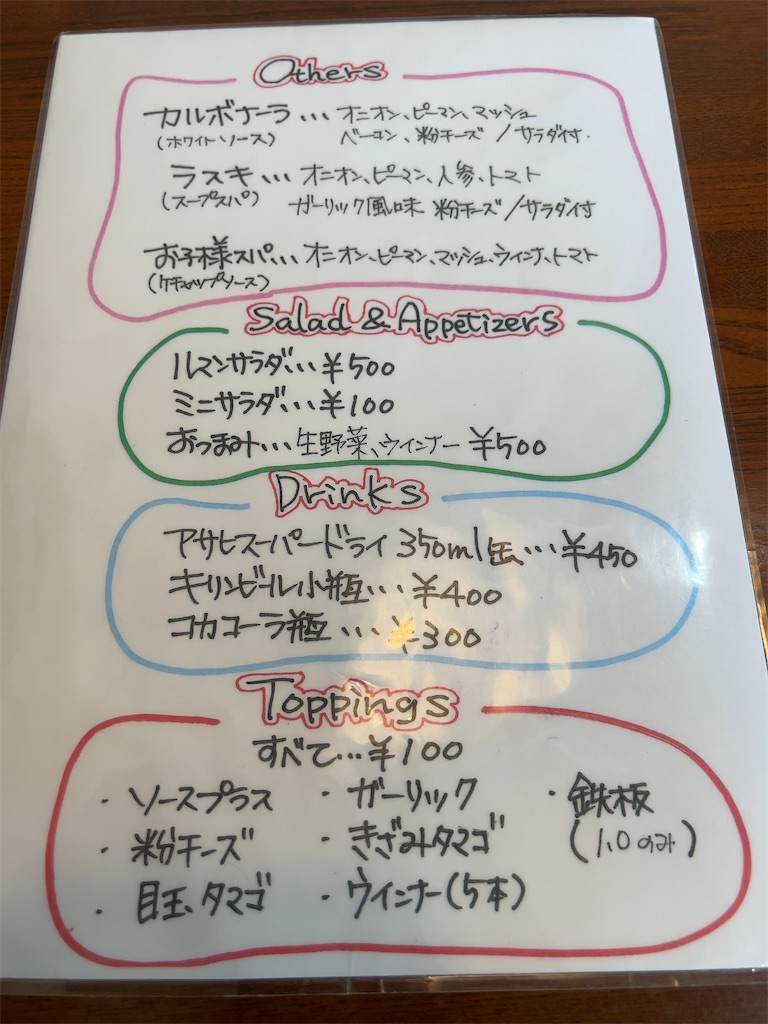 Others
カルボナーラ... オニオン、ピーマン、マッシュ
(ホワイトソース) ベーコン、粉チーズ / サラダ付
ラスキ... オニオン、ピーマン、人参、トマト
(スープスパ) ガーリック風味 粉チーズ / サラダ付
お子様スパ... オニオン、ピーマン、マッシュ、ウィンナ、トマト
(ケチャップソース)
Salad & Appetizers
ルマンサラダ...¥500
ミニサラダ...¥100
おつまみ...生野菜、ウインナー ¥500
Drinks
アサヒスーパードライ 350ml缶...¥450
キリンビール小瓶...¥400
コカコーラ瓶...¥300
Toppings
すべて...¥100
・ソースプラス ・ガーリック ・鉄板
・粉チーズ ・きざみタマゴ (1.0のみ)
・目玉タマゴ ・ウインナー(5本)